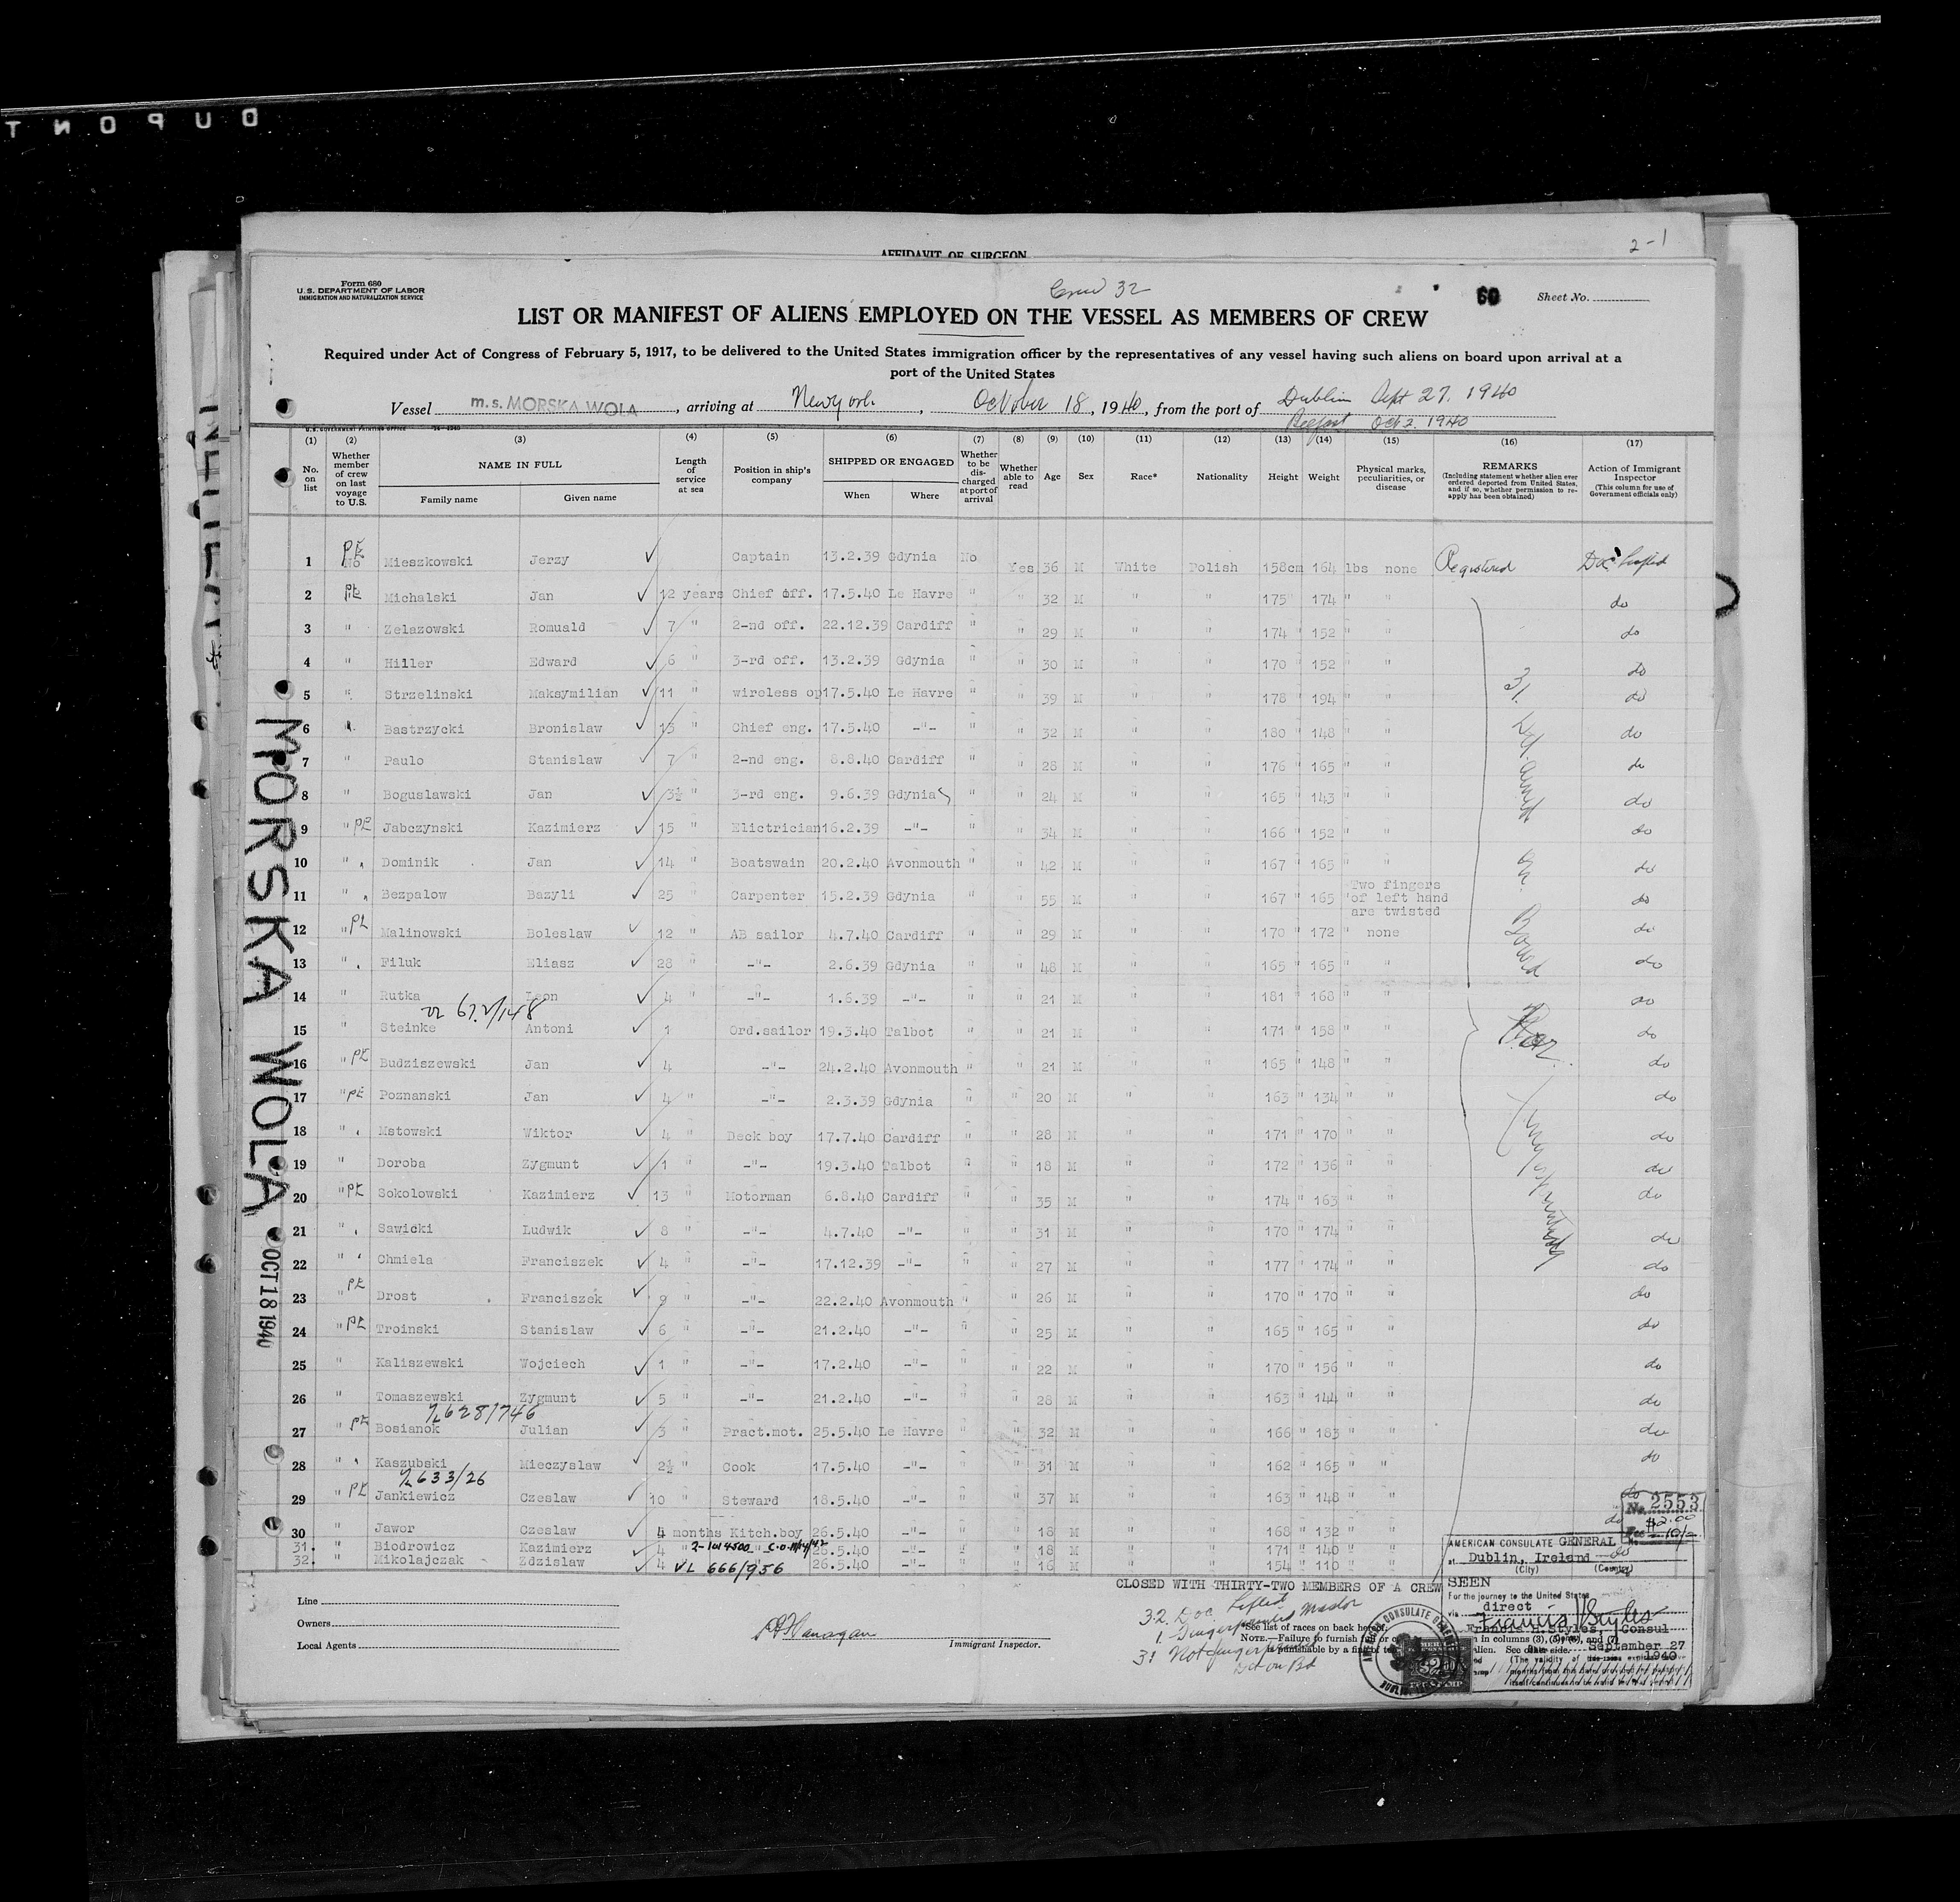 DUPONT
2-1
AFFIDAVIT OF SURGEON
Form 680
U.S. DEPARTMENT OF LABOR
IMMIGRATION AND NATURALIZATION SERVICE
Crew 32
60
Sheet No.
LIST OR MANIFEST OF ALIENS EMPLOYED ON THE VESSEL AS MEMBERS OF CREW
Required under Act of Congress of February 5, 1917, to be delivered to the United States immigration officer by the representatives of any vessel having such aliens on board upon arrival at a
port of the United States
Vessel m.s. MORSKA WOLA, arriving at New York, October 18, 1940, from the port of Dublin Sept 27. 1940
Belfast Oct 2. 1940
(1) (2) (3) (4) (5) (6) (7) (8) (9) (10) (11) (12) (13) (14) (15) (16) (17)
No. on list
Whether member of crew on last voyage to U.S.
NAME IN FULL
Family name
Given name
Length of service at sea
Position in ship's company
SHIPPED OR ENGAGED
When
Where
Whether to be discharged at port of arrival
Whether able to read
Age
Sex
Race*
Nationality
Height
Weight
Physical marks, peculiarities, or disease
REMARKS
(Including statement whether alien ever ordered deported from United States, and if so, whether permission to reapply has been obtained)
Action of Immigrant Inspector
(This column for use of Government officials only)
1 PE No Mieszkowski Jerzy Captain 13.2.39 Gdynia No Yes 36 M White Polish 158cm 164 lbs none Registered Doc Lifted
2 PE Michalski Jan 12 years Chief off. 17.5.40 Le Havre " " 32 M " " 175 " 174 " " do
3 " Zelazowski Romuald 7 " 2-nd off. 22.12.39 Cardiff " " 29 M " " 174 " 152 " " do
4 " Hiller Edward 6 " 3-rd off. 13.2.39 Gdynia " " 30 M " " 170 " 152 " " do
5 " Strzelinski Maksymilian 11 " wireless op 17.5.40 Le Havre " " 39 M " " 178 " 194 " " do
6 " Bastrzycki Bronislaw 13 " Chief eng. 17.5.40 -"- " " 32 M " " 180 " 148 " " do
7 " Paulo Stanislaw 7 " 2-nd eng. 8.8.40 Cardiff " " 28 M " " 176 " 165 " " do
8 " Boguslawski Jan 3½ " 3-rd eng. 9.6.39 Gdynia " " 24 M " " 165 " 143 " " do
9 " PE Jabczynski Kazimierz 15 " Elictrician 16.2.39 -"- " " 34 M " " 166 " 152 " " do
10 " " Dominik Jan 14 " Boatswain 20.2.40 Avonmouth " " 42 M " " 167 " 165 " " do
11 " " Bezpalow Bazyli 25 " Carpenter 15.2.39 Gdynia " " 55 M " " 167 " 165 " Two fingers of left hand are twisted do
12 " PE Malinowski Boleslaw 12 " AB sailor 4.7.40 Cardiff " " 29 M " " 170 " 172 " none do
13 " " Filuk Eliasz 28 " -"- 2.6.39 Gdynia " " 48 M " " 165 " 165 " " do
14 " Rutka Leon 4 " -"- 1.6.39 -"- " " 21 M " " 181 " 168 " " do
15 " Steinke Antoni 1 Ord.sailor 19.3.40 Talbot " " 21 M " " 171 " 158 " " do
16 " PE Budziszewski Jan 4 -"- 24.2.40 Avonmouth " " 21 M " " 165 " 148 " " do
17 " PE Poznanski Jan 4 " -"- 2.3.39 Gdynia " " 20 M " " 163 " 134 " " do
18 " " Mstowski Wiktor 4 " Deck boy 17.7.40 Cardiff " " 28 M " " 171 " 170 " " do
19 " Doroba Zygmunt 1 " -"- 19.3.40 Talbot " " 18 M " " 172 " 136 " " do
20 " PE Sokolowski Kazimierz 13 " Motorman 6.8.40 Cardiff " " 35 M " " 174 " 163 " " do
21 " " Sawicki Ludwik 8 " -"- 4.7.40 -"- " " 31 M " " 170 " 174 " " do
22 " " Chmiela Franciszek 4 " -"- 17.12.39 -"- " " 27 M " " 177 " 174 " " do
23 " PE Drost Franciszek 9 " -"- 22.2.40 Avonmouth " " 26 M " " 170 " 170 " " do
24 " PE Troinski Stanislaw 6 " -"- 21.2.40 -"- " " 25 M " " 165 " 165 " " do
25 " Kaliszewski Wojciech 1 " -"- 17.2.40 -"- " " 22 M " " 170 " 156 " " do
26 " Tomaszewski Zygmunt 5 " -"- 21.2.40 -"- " " 28 M " " 163 " 144 " " do
628/746
27 " PE Bosianok Julian 3 " Pract.mot. 25.5.40 Le Havre " " 32 M " " 166 " 183 " " do
28 " " Kaszubski Mieczyslaw 2½ " Cook 17.5.40 -"- " " 31 M " " 162 " 165 " " do
633/26
29 " PE Jankiewicz Czeslaw 10 " Steward 18.5.40 -"- " " 37 M " " 163 " 148 " " do
30 " Jawor Czeslaw 4 months Kitch.boy 26.5.40 -"- " " 18 M " " 168 " 132 " " do
31. " Biodrowicz Kazimierz 4 " 26.5.40 -"- " " 18 M " " 171 " 140 " "
32. " Mikolajczak Zdzislaw 4 VL 666/956 26.5.40 -"- " " 16 M " " 154 " 110 " " do
MORSKA WOLA OCT 18 1940
CLOSED WITH THIRTY-TWO MEMBERS OF A CREW
Line
Owners
Local Agents
Immigrant Inspector.
32 Doc. Lifted
1. Fingerprinted Master
31 Not fingerprinted
Det on Bd
*See list of races on back hereof.
NOTE.—Failure to furnish
punishable by a fine of
in columns (3), (5), (6), and (7)
alien. See other side.
No. 2553
$2.00
Fee 10/-
AMERICAN CONSULATE GENERAL
at Dublin, Ireland
(City) (Country)
SEEN
For the journey to the United States
via direct
Francis H. Styles
Francis H. Styles, Consul
September 27
1940
AMERICAN CONSULATE GENERAL
DUBLIN